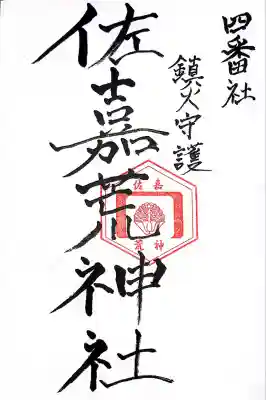 四番社
鎮火守護
佐嘉荒神社
佐嘉
荒神